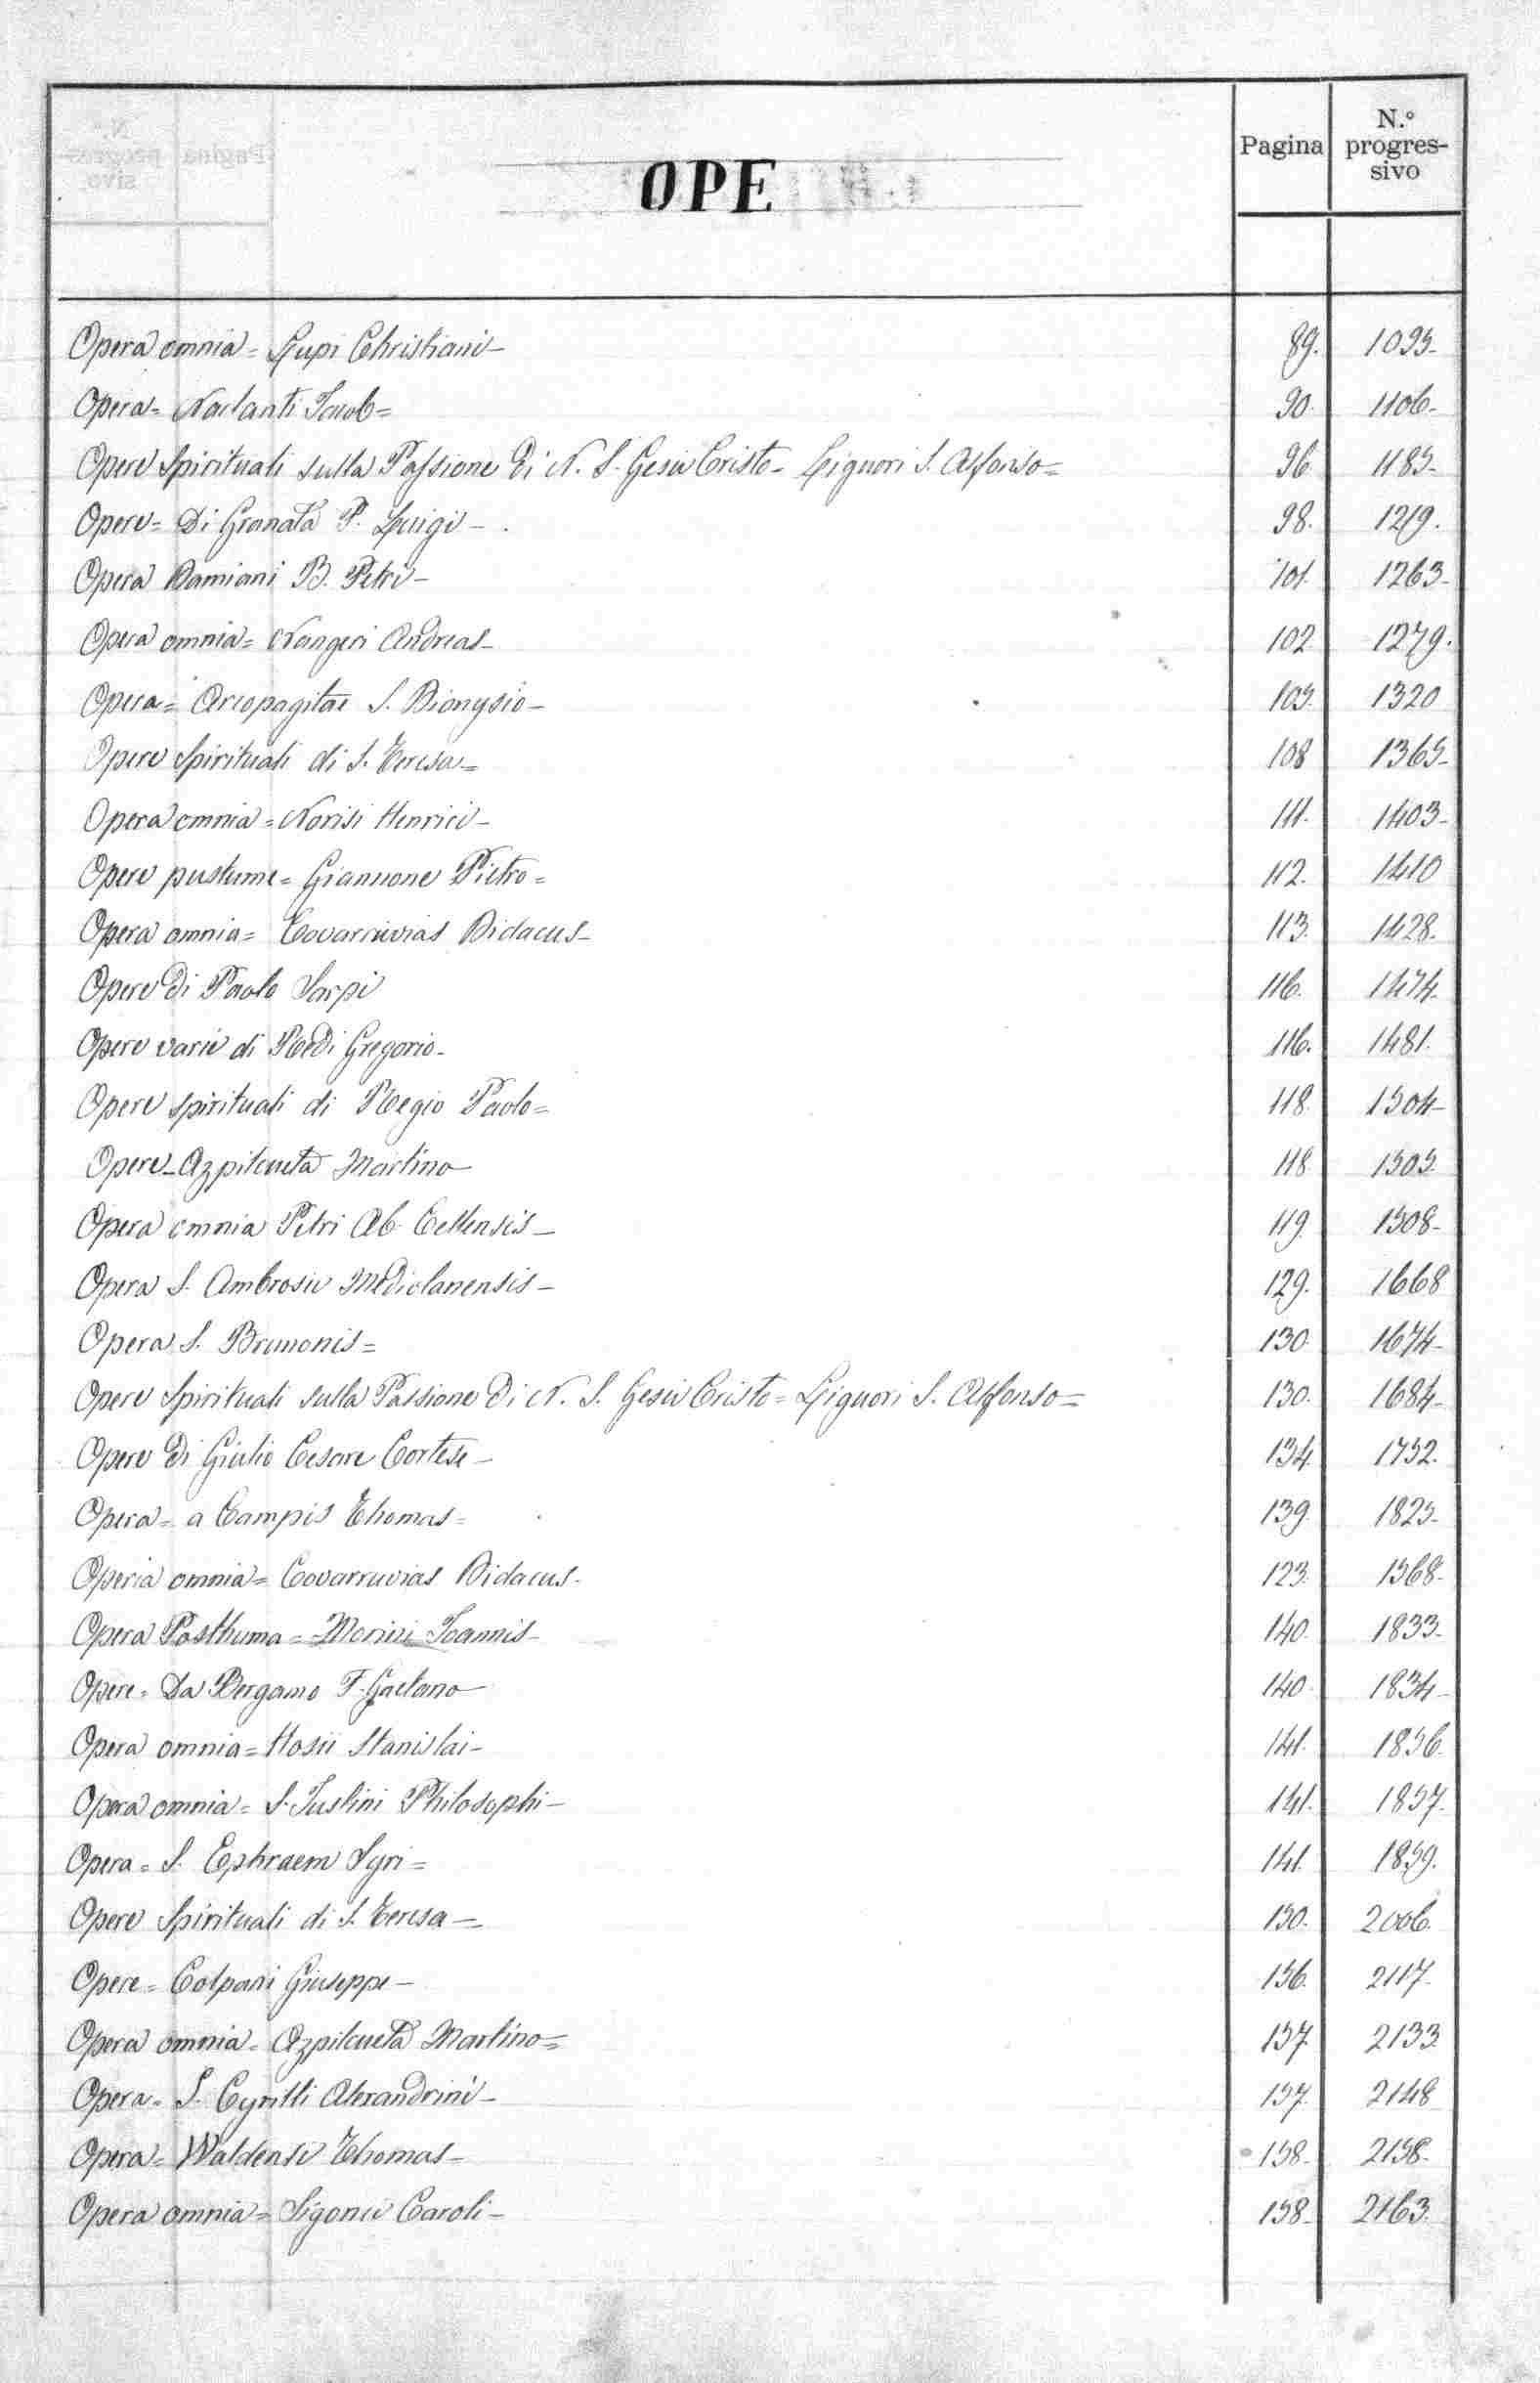 OPE
Pagina
N.º progressivo
Opera omnia = Lupi Christiani - 89. 1095-
Opera = Naclanti Jacob = 90. 1106-
Opere Spirituali sulla Passione di N. S. Gesù Cristo - Liguori S. Alfonso = 96 1185-
Opere = Di Granata P. Luigi - 98. 1219.
Opera Damiani B. Petri - 101. 1263-
Opera omnia = Nangeri Andreas - 102 1279.
Opera = Areopagitae S. Dionysio - 105. 1320
Opere Spirituali di S. Teresa = 108 1365-
Opera omnia = Norisi Henrici - 111. 1403-
Opere pustume = Giannone Pietro = 112. 1410
Opera omnia = Covarruvias Didacus - 113. 1428.
Opere di Paolo Sarpi 116. 1474-
Opere varie di Redi Gregorio - 116. 1481.
Opere spirituali di Regio Paolo = 118 1504-
Opere - Azpilcueta Martino 118 1505
Opera omnia Petri Ab. Cellensis - 119 1508-
Opera S. Ambrosii Mediolanensis - 129. 1668
Opera S. Brunonis = 130 1674-
Opere Spirituali sulla Passione di N. S. Gesù Cristo = Liguori S. Alfonso = 130. 1684-
Opere di Giulio Cesare Cortese - 134 1732.
Opera = a Campis Thomas = 139. 1825-
Operia omnia = Covarruvias Didacus - 123. 1568-
Opera Posthuma = Morini Joannis - 140. 1833-
Opere = Da Bergamo F. Gaetano 140 1834-
Opera omnia = Hosii Stanislai - 141. 1856.
Opera omnia = S. Justini Philosophi - 141. 1857.
Opera = S. Ephraem Syri = 141. 1859.
Opere Spirituali di S. Teresa - 150. 2006.
Opere = Colpani Giuseppe - 156. 2117
Opera omnia = Azpilcueta Martino = 157 2133
Opera = S. Cyrilli Alexandrini - 157. 2148
Opera = Waldensi Thomas - 158- 2158-
Opera omnia = Sigonii Caroli - 158- 2163.